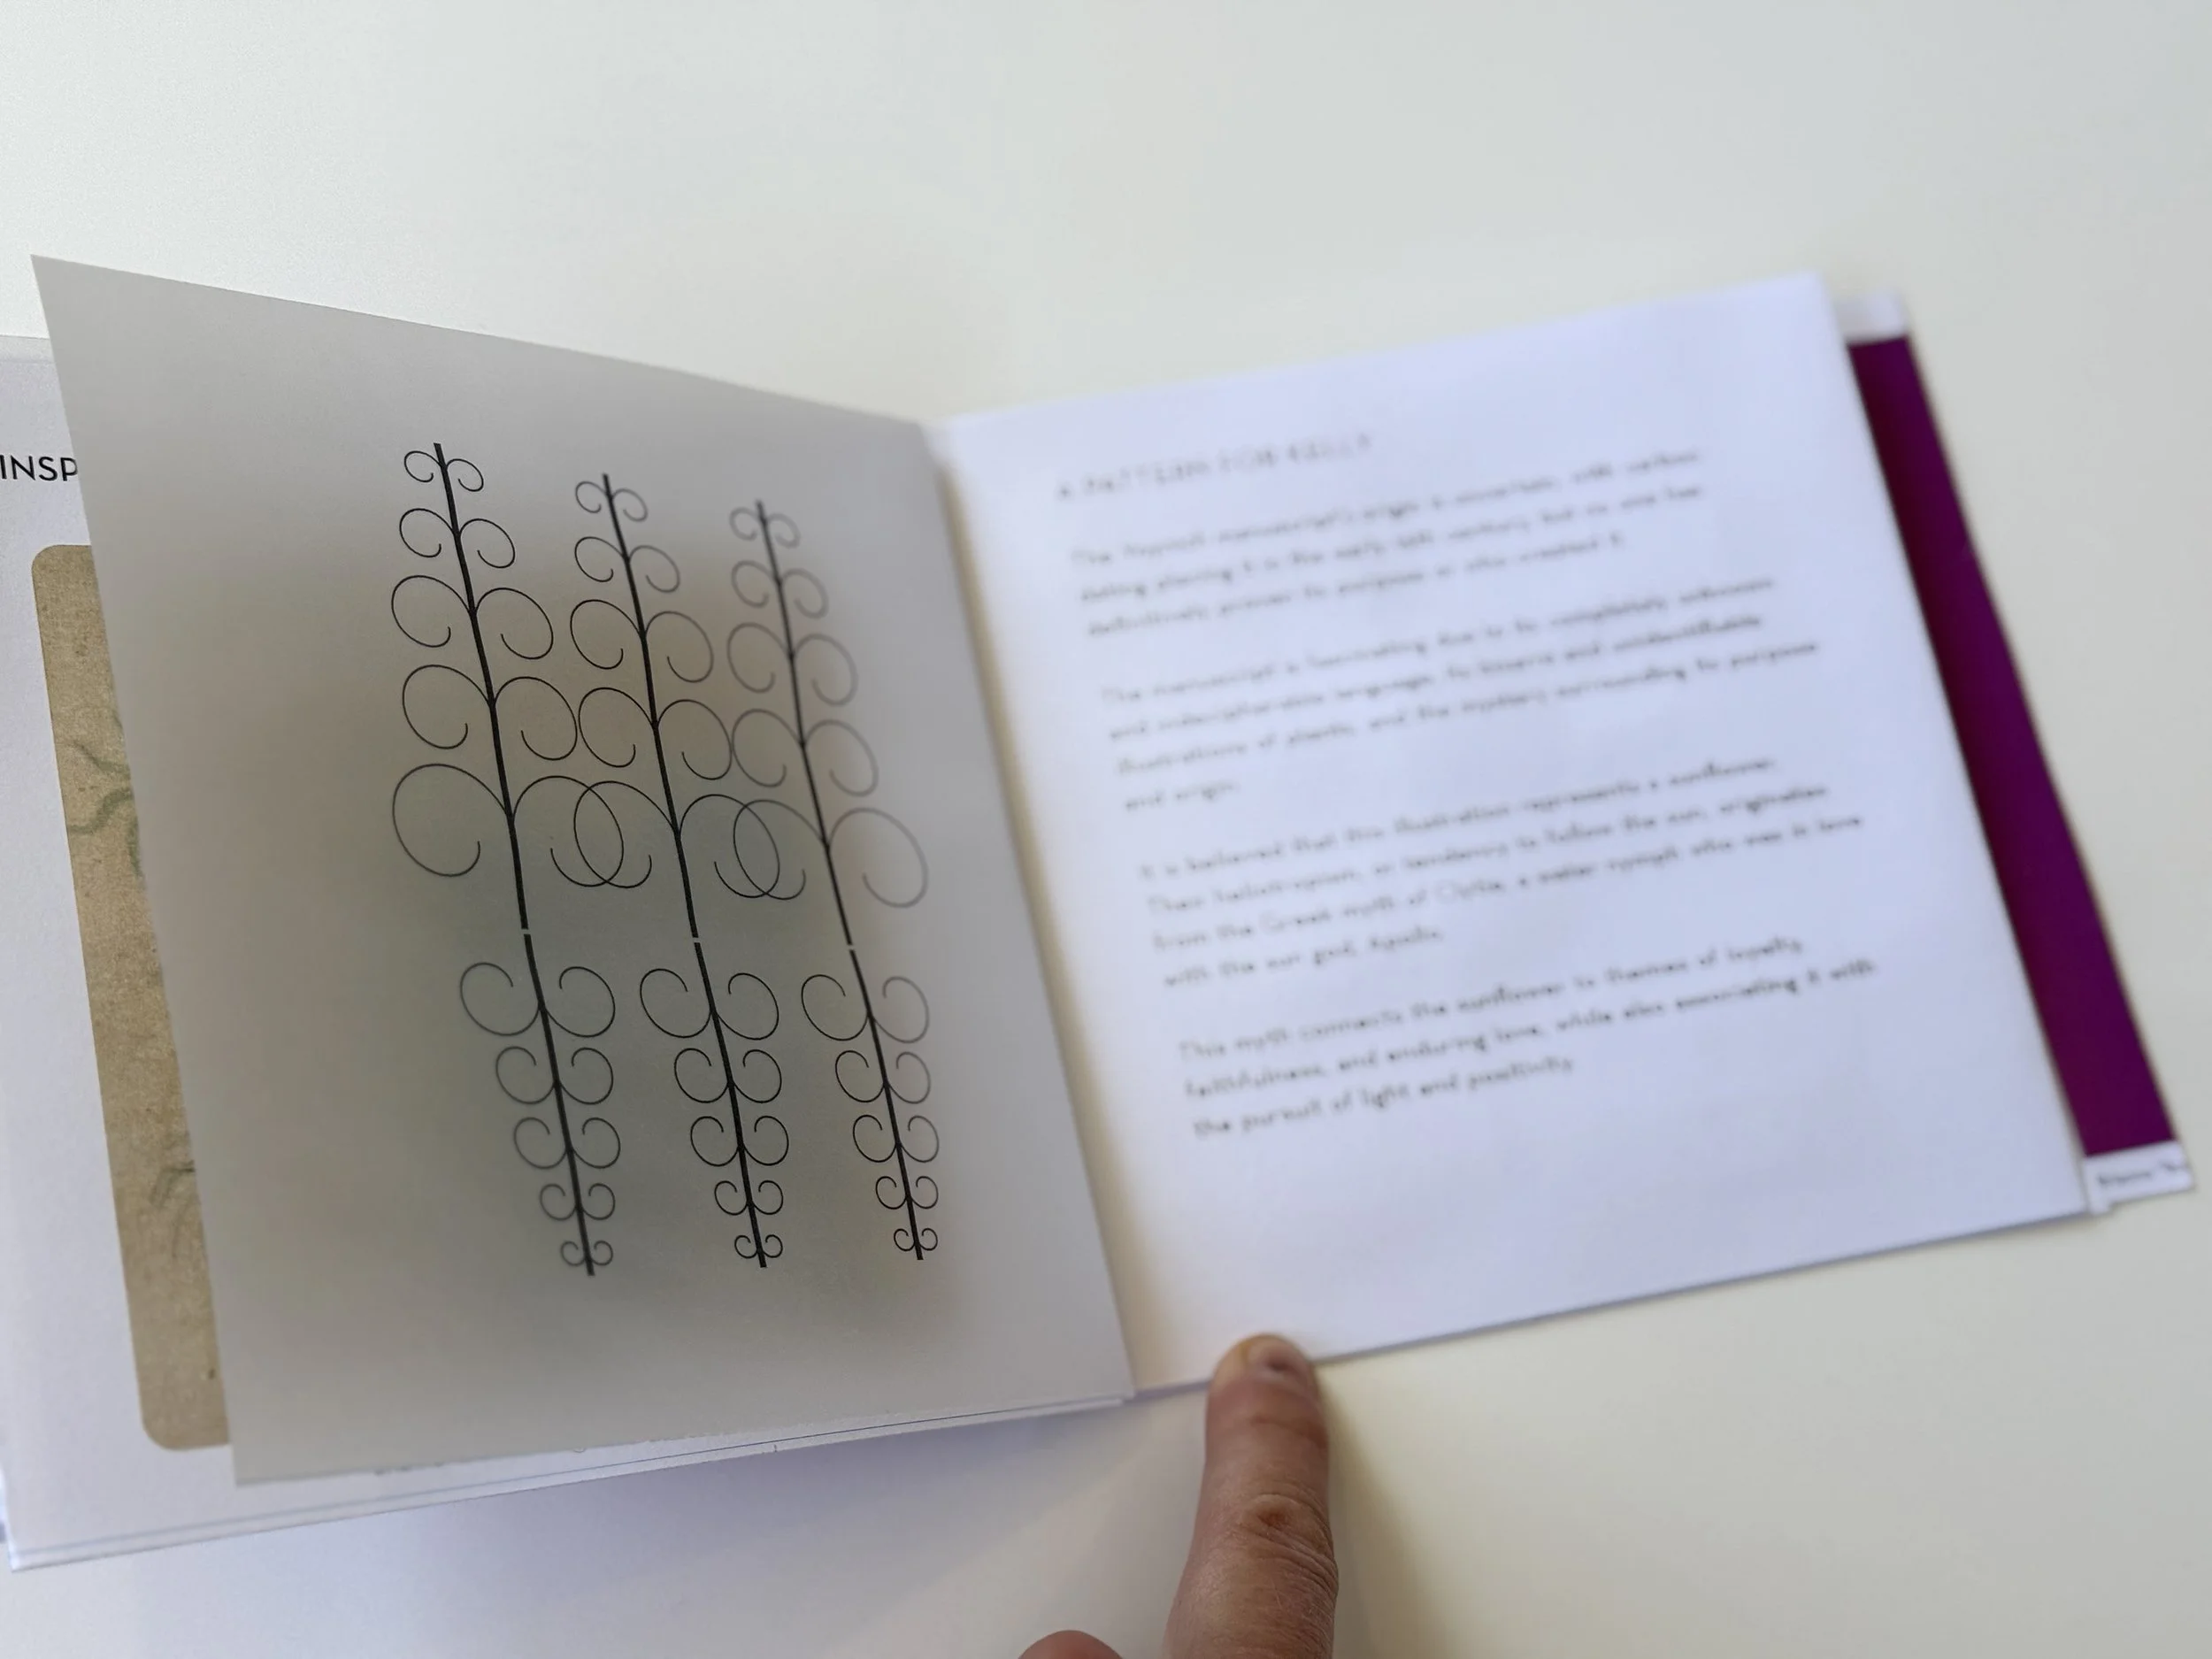 INSP
A PATTERN FOR KELLY
The manuscript's origin is uncertain, with carbon
dating placing it in the early 15th century, but no one has
definitively proven its purpose or who created it.
The manuscript is fascinating due to its completely unknown
and indecipherable language, its bizarre and unidentifiable
illustrations of plants, and the mystery surrounding its purpose
and origin.
It is believed that this illustration represents a sunflower.
Their heliotropism, or tendency to follow the sun, originates
from the Greek myth of Clytie, a water nymph who was in love
with the sun god, Apollo.
This myth connects the sunflower to themes of loyalty,
faithfulness, and enduring love, while also associating it with
the pursuit of light and positivity.